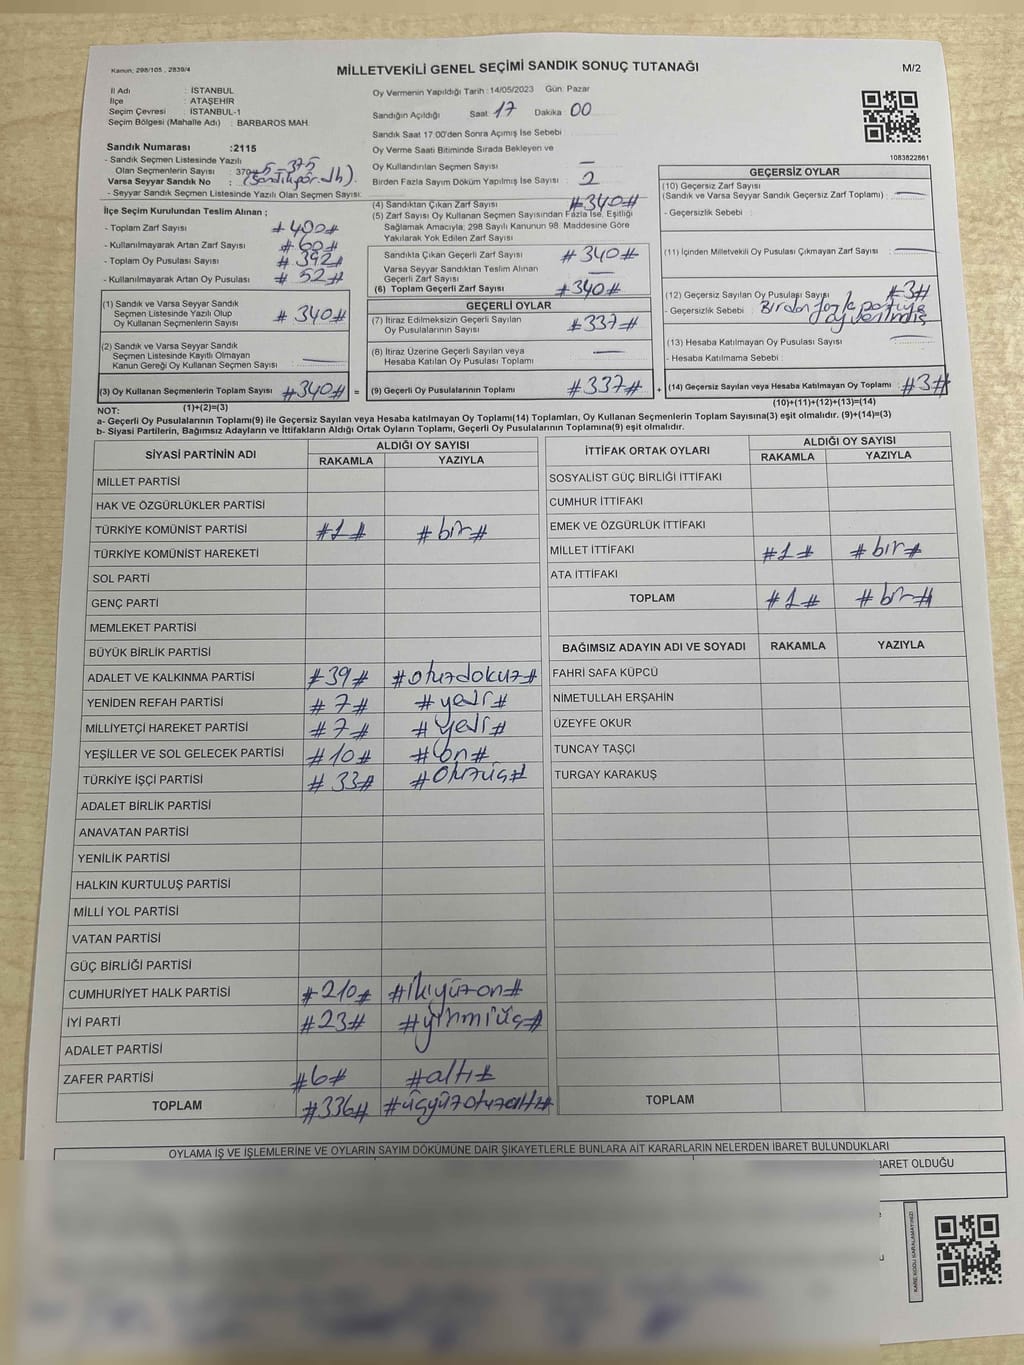 Kanun: 298/105 , 2839/4
MİLLETVEKİLİ GENEL SEÇİMİ SANDIK SONUÇ TUTANAĞI
M/2
İl Adı : İSTANBUL
İlçe : ATAŞEHİR
Seçim Çevresi : İSTANBUL-1
Seçim Bölgesi (Mahalle Adı) : BARBAROS MAH.
Sandık Numarası :2115
- Sandık Seçmen Listesinde Yazılı
Olan Seçmenlerin Sayısı : 370 375
Varsa Seyyar Sandık No :
- Seyyar Sandık Seçmen Listesinde Yazılı Olan Seçmen Sayısı:
İlçe Seçim Kurulundan Teslim Alınan ;
- Toplam Zarf Sayısı #400#
- Kullanılmayarak Artan Zarf Sayısı #60#
- Toplam Oy Pusulası Sayısı #392#
- Kullanılmayarak Artan Oy Pusulası #52#
(1) Sandık ve Varsa Seyyar Sandık
Seçmen Listesinde Yazılı Olup
Oy Kullanan Seçmenlerin Sayısı #340#
(2) Sandık ve Varsa Seyyar Sandık
Seçmen Listesinde Kayıtlı Olmayan
Kanun Gereği Oy Kullanan Seçmen Sayısı —
(3) Oy Kullanan Seçmenlerin Toplam Sayısı #340# =
(1)+(2)=(3)
Oy Vermenin Yapıldığı Tarih : 14/05/2023 Gün: Pazar
Sandığın Açıldığı Saat 17 Dakika 00
Sandık Saat 17:00'den Sonra Açımış İse Sebebi
Oy Verme Saati Bitiminde Sırada Bekleyen ve
Oy Kullandırılan Seçmen Sayısı —
Birden Fazla Sayım Döküm Yapılmış İse Sayısı 2
(4) Sandıktan Çıkan Zarf Sayısı #340#
(5) Zarf Sayısı Oy Kullanan Seçmen Sayısından Fazla İse, Eşitliği
Sağlamak Amacıyla; 298 Sayılı Kanunun 98. Maddesine Göre
Yakılarak Yok Edilen Zarf Sayısı
Sandıkta Çıkan Geçerli Zarf Sayısı #340#
Varsa Seyyar Sandıktan Teslim Alınan
Geçerli Zarf Sayısı —
(6) Toplam Geçerli Zarf Sayısı #340#
GEÇERLİ OYLAR
(7) İtiraz Edilmeksizin Geçerli Sayılan
Oy Pusulalarının Sayısı #337#
(8) İtiraz Üzerine Geçerli Sayılan veya
Hesaba Katılan Oy Pusulası Toplamı —
(9) Geçerli Oy Pusulalarının Toplamı #337# +
1083822861
GEÇERSİZ OYLAR
(10) Geçersiz Zarf Sayısı
(Sandık ve Varsa Seyyar Sandık Geçersiz Zarf Toplamı) : —
- Geçersizlik Sebebi :
(11) İçinden Milletvekili Oy Pusulası Çıkmayan Zarf Sayısı : —
(12) Geçersiz Sayılan Oy Pusulası Sayısı #3#
- Geçersizlik Sebebi : Birden fazla partiye
oy verilmiş
(13) Hesaba Katılmayan Oy Pusulası Sayısı : —
- Hesaba Katılmama Sebebi :
(14) Geçersiz Sayılan veya Hesaba Katılmayan Oy Toplamı : #3#
(10)+(11)+(12)+(13)=(14)
NOT:
a- Geçerli Oy Pusulalarının Toplamı(9) ile Geçersiz Sayılan veya Hesaba katılmayan Oy Toplamı(14) Toplamları, Oy Kullanan Seçmenlerin Toplam Sayısına(3) eşit olmalıdır. (9)+(14)=(3)
b- Siyasi Partilerin, Bağımsız Adayların ve İttifakların Aldığı Ortak Oyların Toplamı, Geçerli Oy Pusulalarının Toplamına(9) eşit olmalıdır.
SİYASİ PARTİNİN ADI ALDIĞI OY SAYISI
RAKAMLA YAZIYLA
MİLLET PARTİSİ
HAK VE ÖZGÜRLÜKLER PARTİSİ
TÜRKİYE KOMÜNİST PARTİSİ #1# #bir#
TÜRKİYE KOMÜNİST HAREKETİ
SOL PARTİ
GENÇ PARTİ
MEMLEKET PARTİSİ
BÜYÜK BİRLİK PARTİSİ
ADALET VE KALKINMA PARTİSİ #39# #otuzdokuz#
YENİDEN REFAH PARTİSİ #7# #yedi#
MİLLİYETÇİ HAREKET PARTİSİ #7# #yedi#
YEŞİLLER VE SOL GELECEK PARTİSİ #10# #on#
TÜRKİYE İŞÇİ PARTİSİ #33# #otuzüç#
ADALET BİRLİK PARTİSİ
ANAVATAN PARTİSİ
YENİLİK PARTİSİ
HALKIN KURTULUŞ PARTİSİ
MİLLİ YOL PARTİSİ
VATAN PARTİSİ
GÜÇ BİRLİĞİ PARTİSİ
CUMHURİYET HALK PARTİSİ #210# #ikiyüzon#
İYİ PARTİ #23# #yirmiüç#
ADALET PARTİSİ
ZAFER PARTİSİ #6# #altı#
TOPLAM #336# #üçyüzotuzaltı#
İTTİFAK ORTAK OYLARI ALDIĞI OY SAYISI
RAKAMLA YAZIYLA
SOSYALİST GÜÇ BİRLİĞİ İTTİFAKI
CUMHUR İTTİFAKI
EMEK VE ÖZGÜRLÜK İTTİFAKI
MİLLET İTTİFAKI #1# #bir#
ATA İTTİFAKI
TOPLAM #1# #bir#
BAĞIMSIZ ADAYIN ADI VE SOYADI RAKAMLA YAZIYLA
FAHRİ SAFA KÜPCÜ
NİMETULLAH ERŞAHİN
ÜZEYFE OKUR
TUNCAY TAŞÇI
TURGAY KARAKUŞ
TOPLAM
OYLAMA İŞ VE İŞLEMLERİNE VE OYLARIN SAYIM DÖKÜMÜNE DAİR ŞİKAYETLERLE BUNLARA AİT KARARLARIN NELERDEN İBARET BULUNDUKLARI
İBARET OLDUĞU
KARE KODU KARALAMAYINIZ!